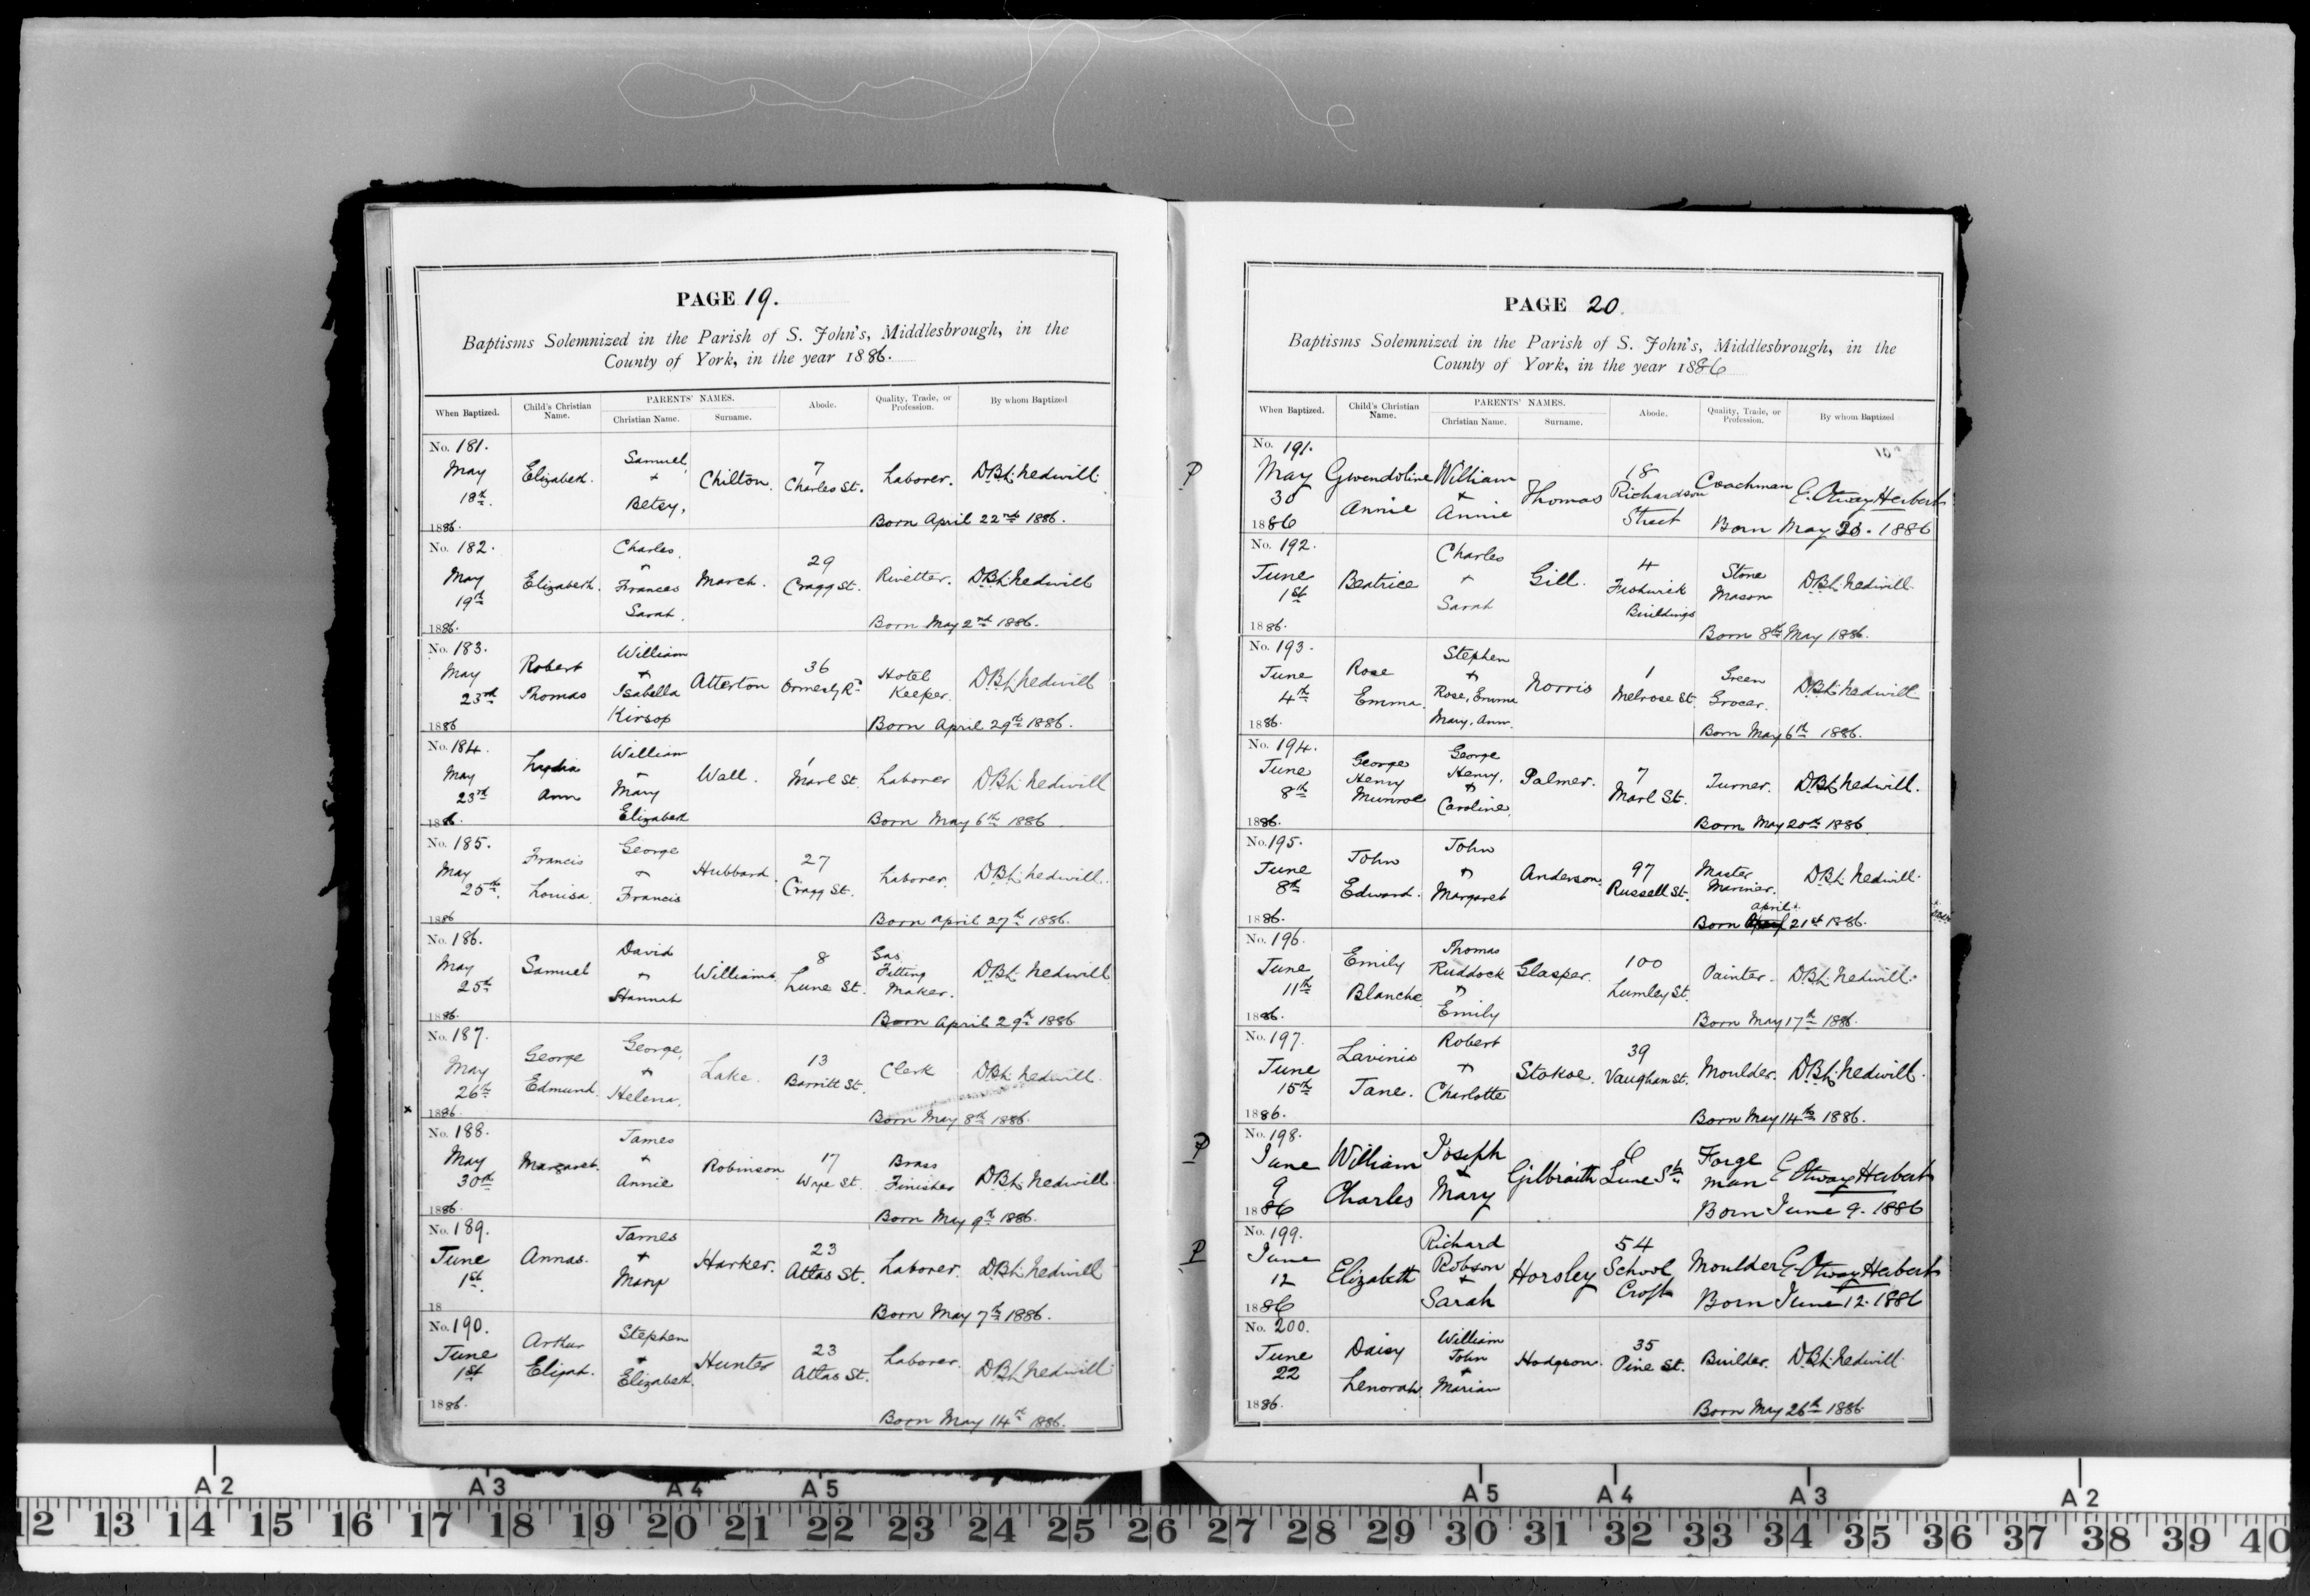 PAGE 19.
Baptisms Solemnized in the Parish of S. John's, Middlesbrough, in the
County of York, in the year 1886.
When Baptized. Child's Christian Name. PARENTS' NAMES. Christian Name. Surname. Abode. Quality, Trade, or Profession. By whom Baptized
No. 181. May 18th. 1886. Elizabeth. Samuel + Betsy, Chilton. 7 Charles St. Laborer. D.B.L. Nedwill
Born April 22nd 1886.
No. 182. May 19th 1886. Elizabeth. Charles + Frances Sarah. March. 29 Cragg St. Rivetter. D.B.L. Nedwill
Born May 2nd 1886.
No. 183. May 23rd 1886 Robert Thomas William + Isabella Kirsop Atterton 36 Ormesby Rd Hotel Keeper. D.B.L. Nedwill
Born April 29th 1886.
No. 184. May 23rd 1886. Lydia Ann William + Mary Elizabeth Wall. 1 Marl St. Laborer D.B.L. Nedwill
Born May 6th 1886
No. 185. May 25th. 1886 Francis Louisa. George + Francis Hubbard. 27 Cragg St. Laborer. D.B.L. Nedwill.
Born April 27th 1886.
No. 186. May 25th 1886. Samuel David + Hannah Williams. 8 Lune St. Gas Fitting Maker. D.B.L. Nedwill
Born April 29th 1886
No. 187. May 26th 1886. George Edmund. George, + Helena. Lake. 13 Barritt St. Clerk D.B.L. Nedwill.
x
Born May 8th 1886.
No. 188. May 30th 1886. Margaret. James + Annie Robinson 17 Wye St. Brass Finisher D.B.L. Nedwill
Born May 9th 1886.
No. 189. June 1st. 18 Annas. James + Mary Harker. 23 Atlas St. Laborer. D.B.L. Nedwill
Born May 7th 1886.
No. 190. June 1st 1886. Arthur Elijah. Stephen + Elizabeth. Hunter 23 Atlas St. Laborer. D.B.L. Nedwill
Born May 14th 1886.
PAGE 20.
Baptisms Solemnized in the Parish of S. John's, Middlesbrough, in the
County of York, in the year 1886
When Baptized. Child's Christian Name. PARENTS' NAMES. Christian Name. Surname. Abode. Quality, Trade, or Profession. By whom Baptized
P No. 191. May 30 1886 Gwendoline Annie William + Annie Thomas 18 Richardson Street Coachman E. Otway Herbert
Born May 1886
No. 192. June 1st 1886. Beatrice Charles + Sarah Gill. 4 Buildings Stone Mason D.B.L. Nedwill.
Born 8th May 1886.
No. 193. June 4th 1886. Rose Emma. Stephen + Rose, Emma Mary, Ann. Norris 1 Melrose St. Green Grocer. D.B.L. Nedwill
Born May 6th 1886.
No. 194. June 8th 1886. George Henry Munroe George Henry, + Caroline. Palmer. 7 Marl St. Turner. D.B.L. Nedwill.
Born May 20th 1886.
No. 195. June 8th 1886. John Edward. John + Margaret Anderson. 97 Russell St. Master Mariner. D.B.L. Nedwill.
Born April 21st 1886.
No. 196. June 11th 1886. Emily Blanche. Thomas Ruddock + Emily Glasper. 100 Lumley St. Painter. D.B.L. Nedwill.
Born May 17th 1886.
No. 197. June 15th 1886. Lavinia Jane. Robert + Charlotte Stokoe. 39 Vaughan St. Moulder. D.B.L. Nedwill.
Born May 14th 1886.
P No. 198. June 9 1886 William Charles Joseph + Mary Gilbraith 6 Lune St. Forge man E Otway Herbert
Born June 9. 1886
P No. 199. June 12 1886 Elizabeth Richard Robson + Sarah Horsley 54 School Croft Moulder E. Otway Herbert
Born June 12. 1886
No. 200. June 22 1886. Daisy Lenorah. William John + Marian Hodgson. 35 Pine St. Builder. D.B.L. Nedwill
Born May 26th 1886.
A2 A3 A4 A5 A5 A4 A3 A2
12 13 14 15 16 17 18 19 20 21 22 23 24 25 26 27 28 29 30 31 32 33 34 35 36 37 38 39 40